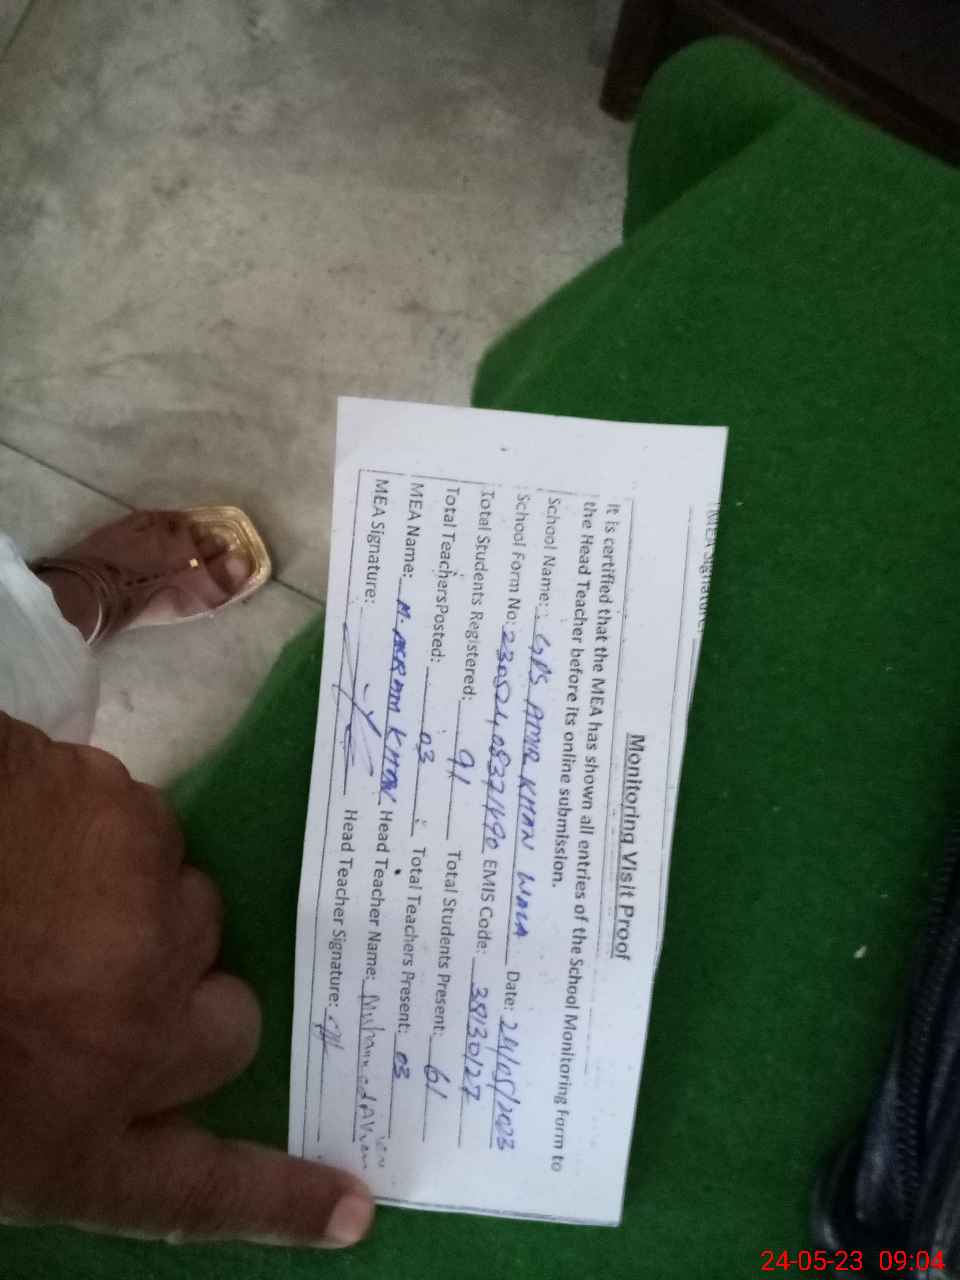 MEA Signature:
Monitoring Visit Proof
It is certified that the MEA has shown all entries of the School Monitoring Form to
the Head Teacher before its online submission.
School Name: GPS AMIR KHAN WALA Date: 24/05/2023
School Form No: EMIS Code: 38130127
Total Students Registered: 91 Total Students Present: 61
Total TeachersPosted: 03 Total Teachers Present: 03
MEA Name: M. AKRAM KHAN Head Teacher Name: Muhammad
MEA Signature: Head Teacher Signature:
24-05-23 09:04